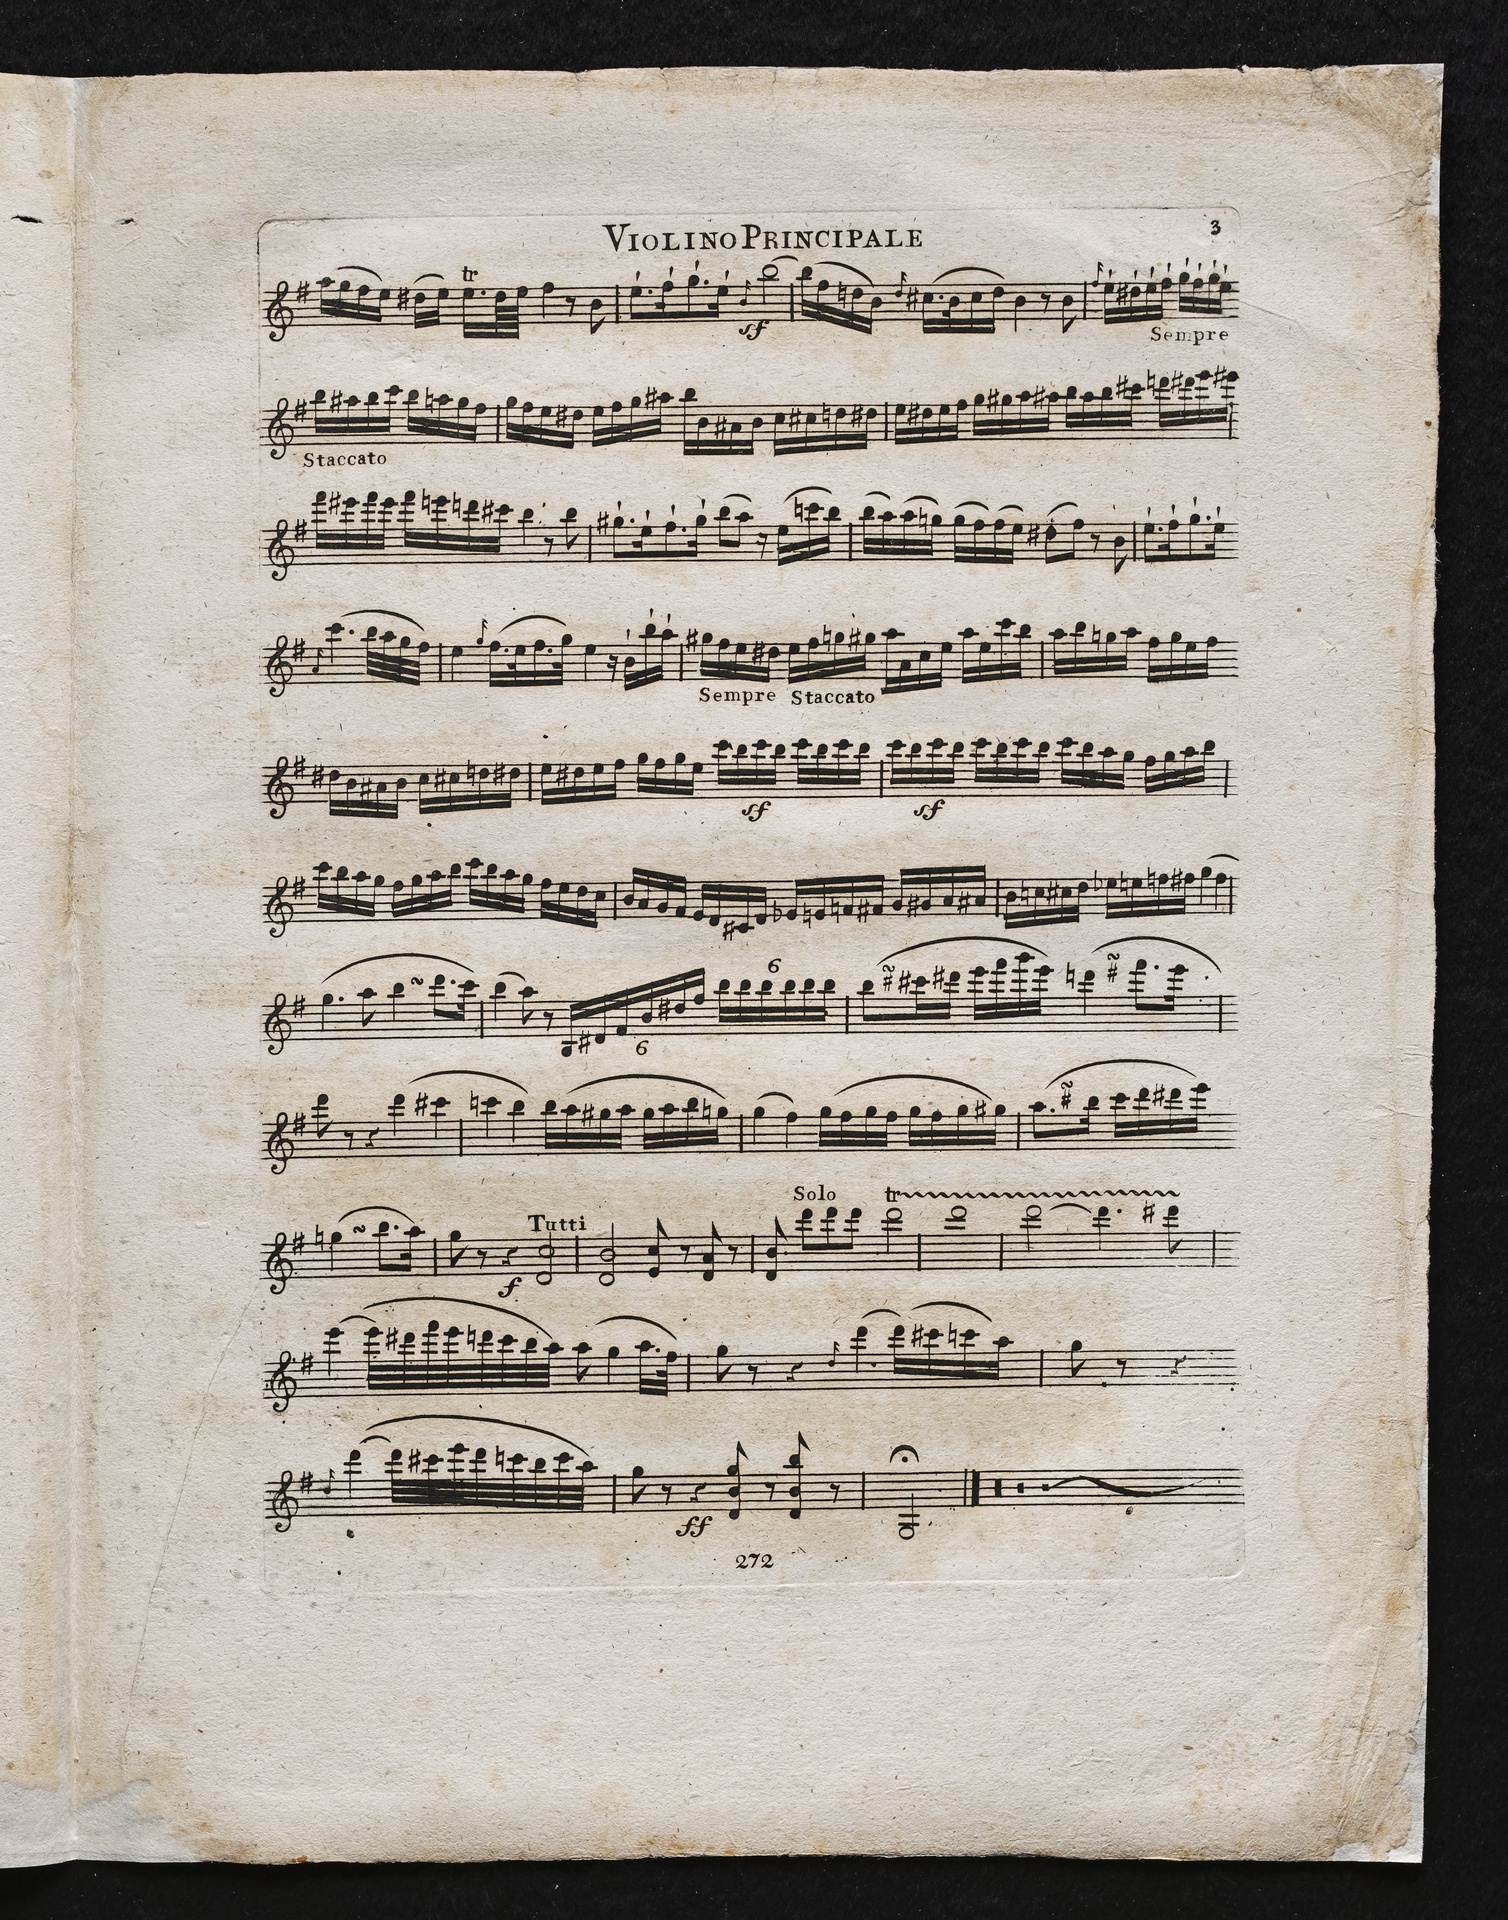 VIOLINO PRINCIPALE
3
tr
sf
Sempre
Staccato
Sempre Staccato
sf sf
6
6
Solo tr
Tutti
f
ff
272